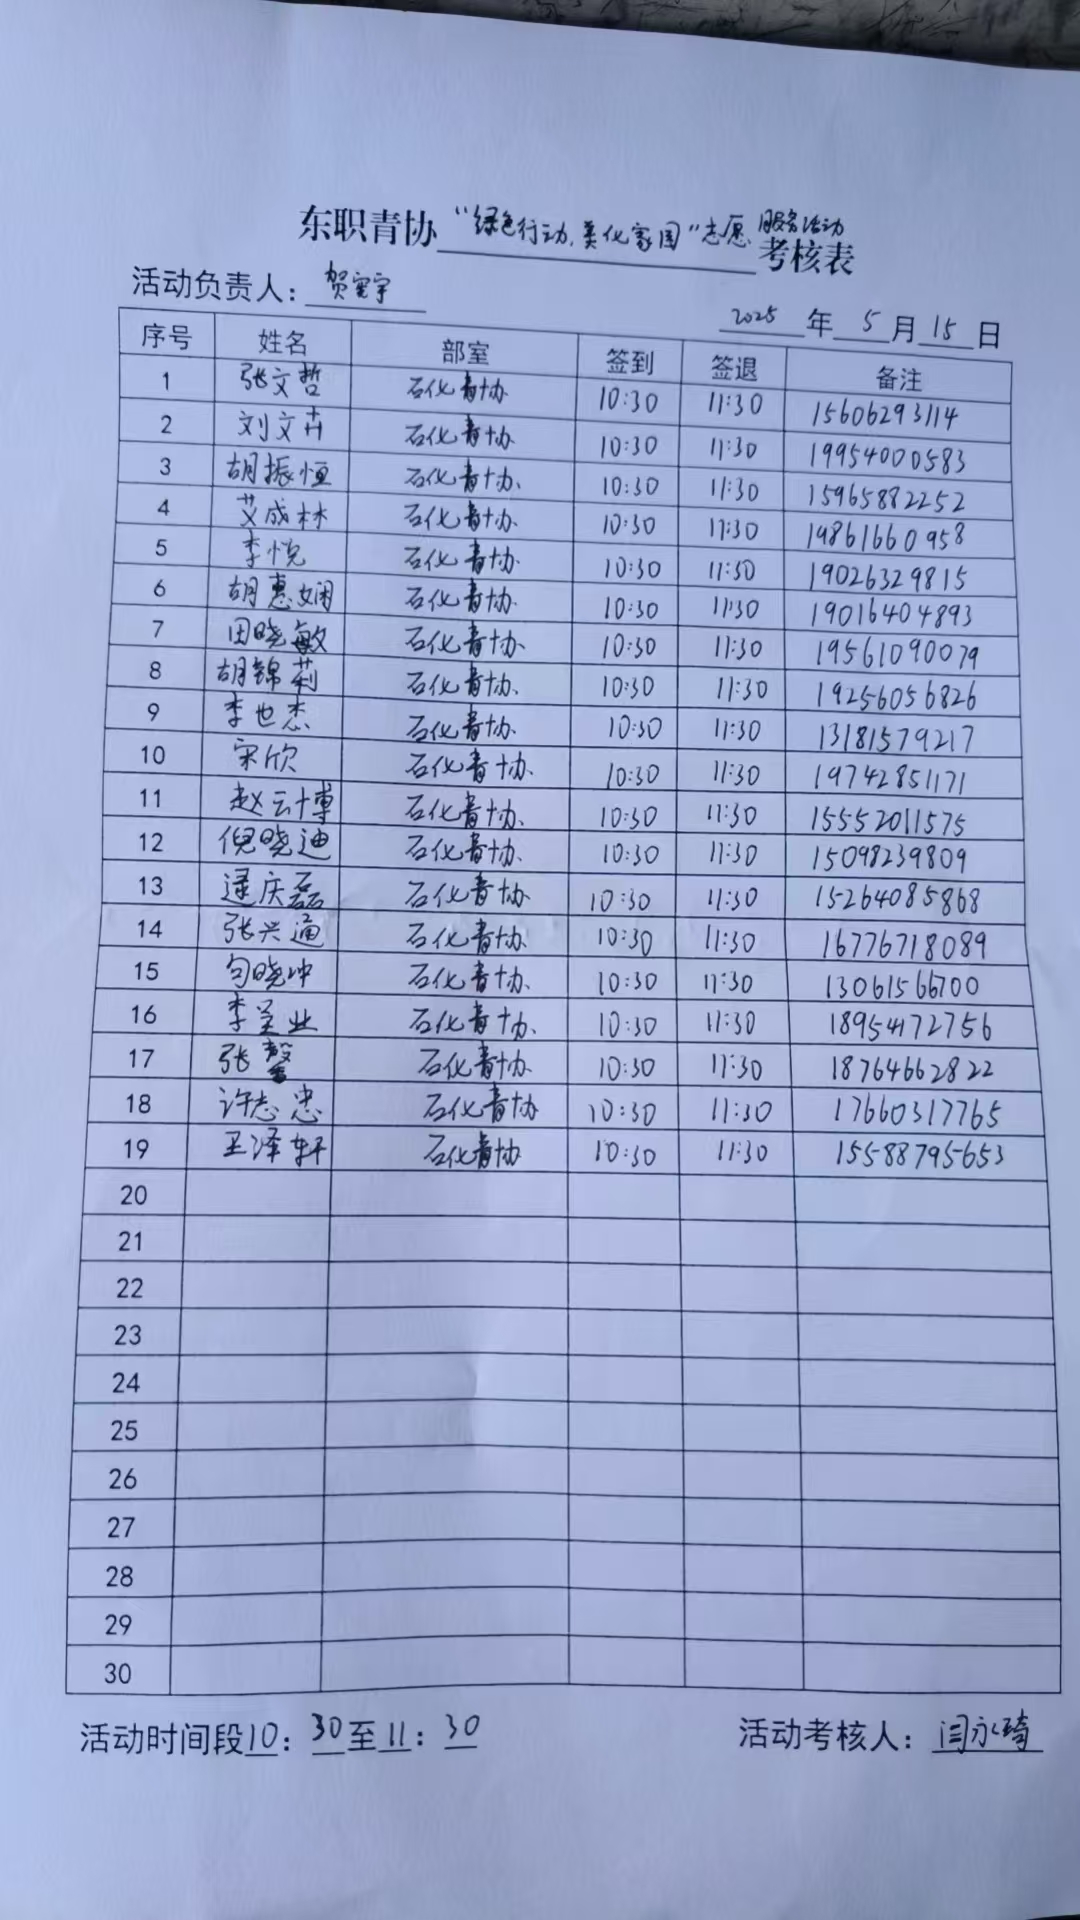 东职青协“绿色行动,美化家园”志愿服务活动考核表
活动负责人：贺宝宇
2025年5月15日
序号 姓名 部室 签到 签退 备注
1 张文哲 石化青协 10:30 11:30 15606293114
2 刘文卉 石化青协 10:30 11:30 19954000583
3 胡振恒 石化青协 10:30 11:30 15965882252
4 艾成林 石化青协 10:30 11:30 19861660958
5 李悦 石化青协 10:30 11:30 19026329815
6 胡惠娴 石化青协 10:30 11:30 19016404893
7 田晓敏 石化青协 10:30 11:30 19561090079
8 胡锦莉 石化青协 10:30 11:30 19256056826
9 李也杰 石化青协 10:30 11:30 13181579217
10 宋欣 石化青协 10:30 11:30 19742851171
11 赵云博 石化青协 10:30 11:30 15552011575
12 倪晓迪 石化青协 10:30 11:30 15098239809
13 逯庆磊 石化青协 10:30 11:30 15264085868
14 张兴通 石化青协 10:30 11:30 16776718089
15 句晓坤 石化青协 10:30 11:30 13061566700
16 李圣业 石化青协 10:30 11:30 18954172756
17 张馨 石化青协 10:30 11:30 18764662822
18 许志忠 石化青协 10:30 11:30 17660317765
19 王泽轩 石化青协 10:30 11:30 15588795653
20
21
22
23
24
25
26
27
28
29
30
活动时间段10：30至11：30 活动考核人：闫永琦